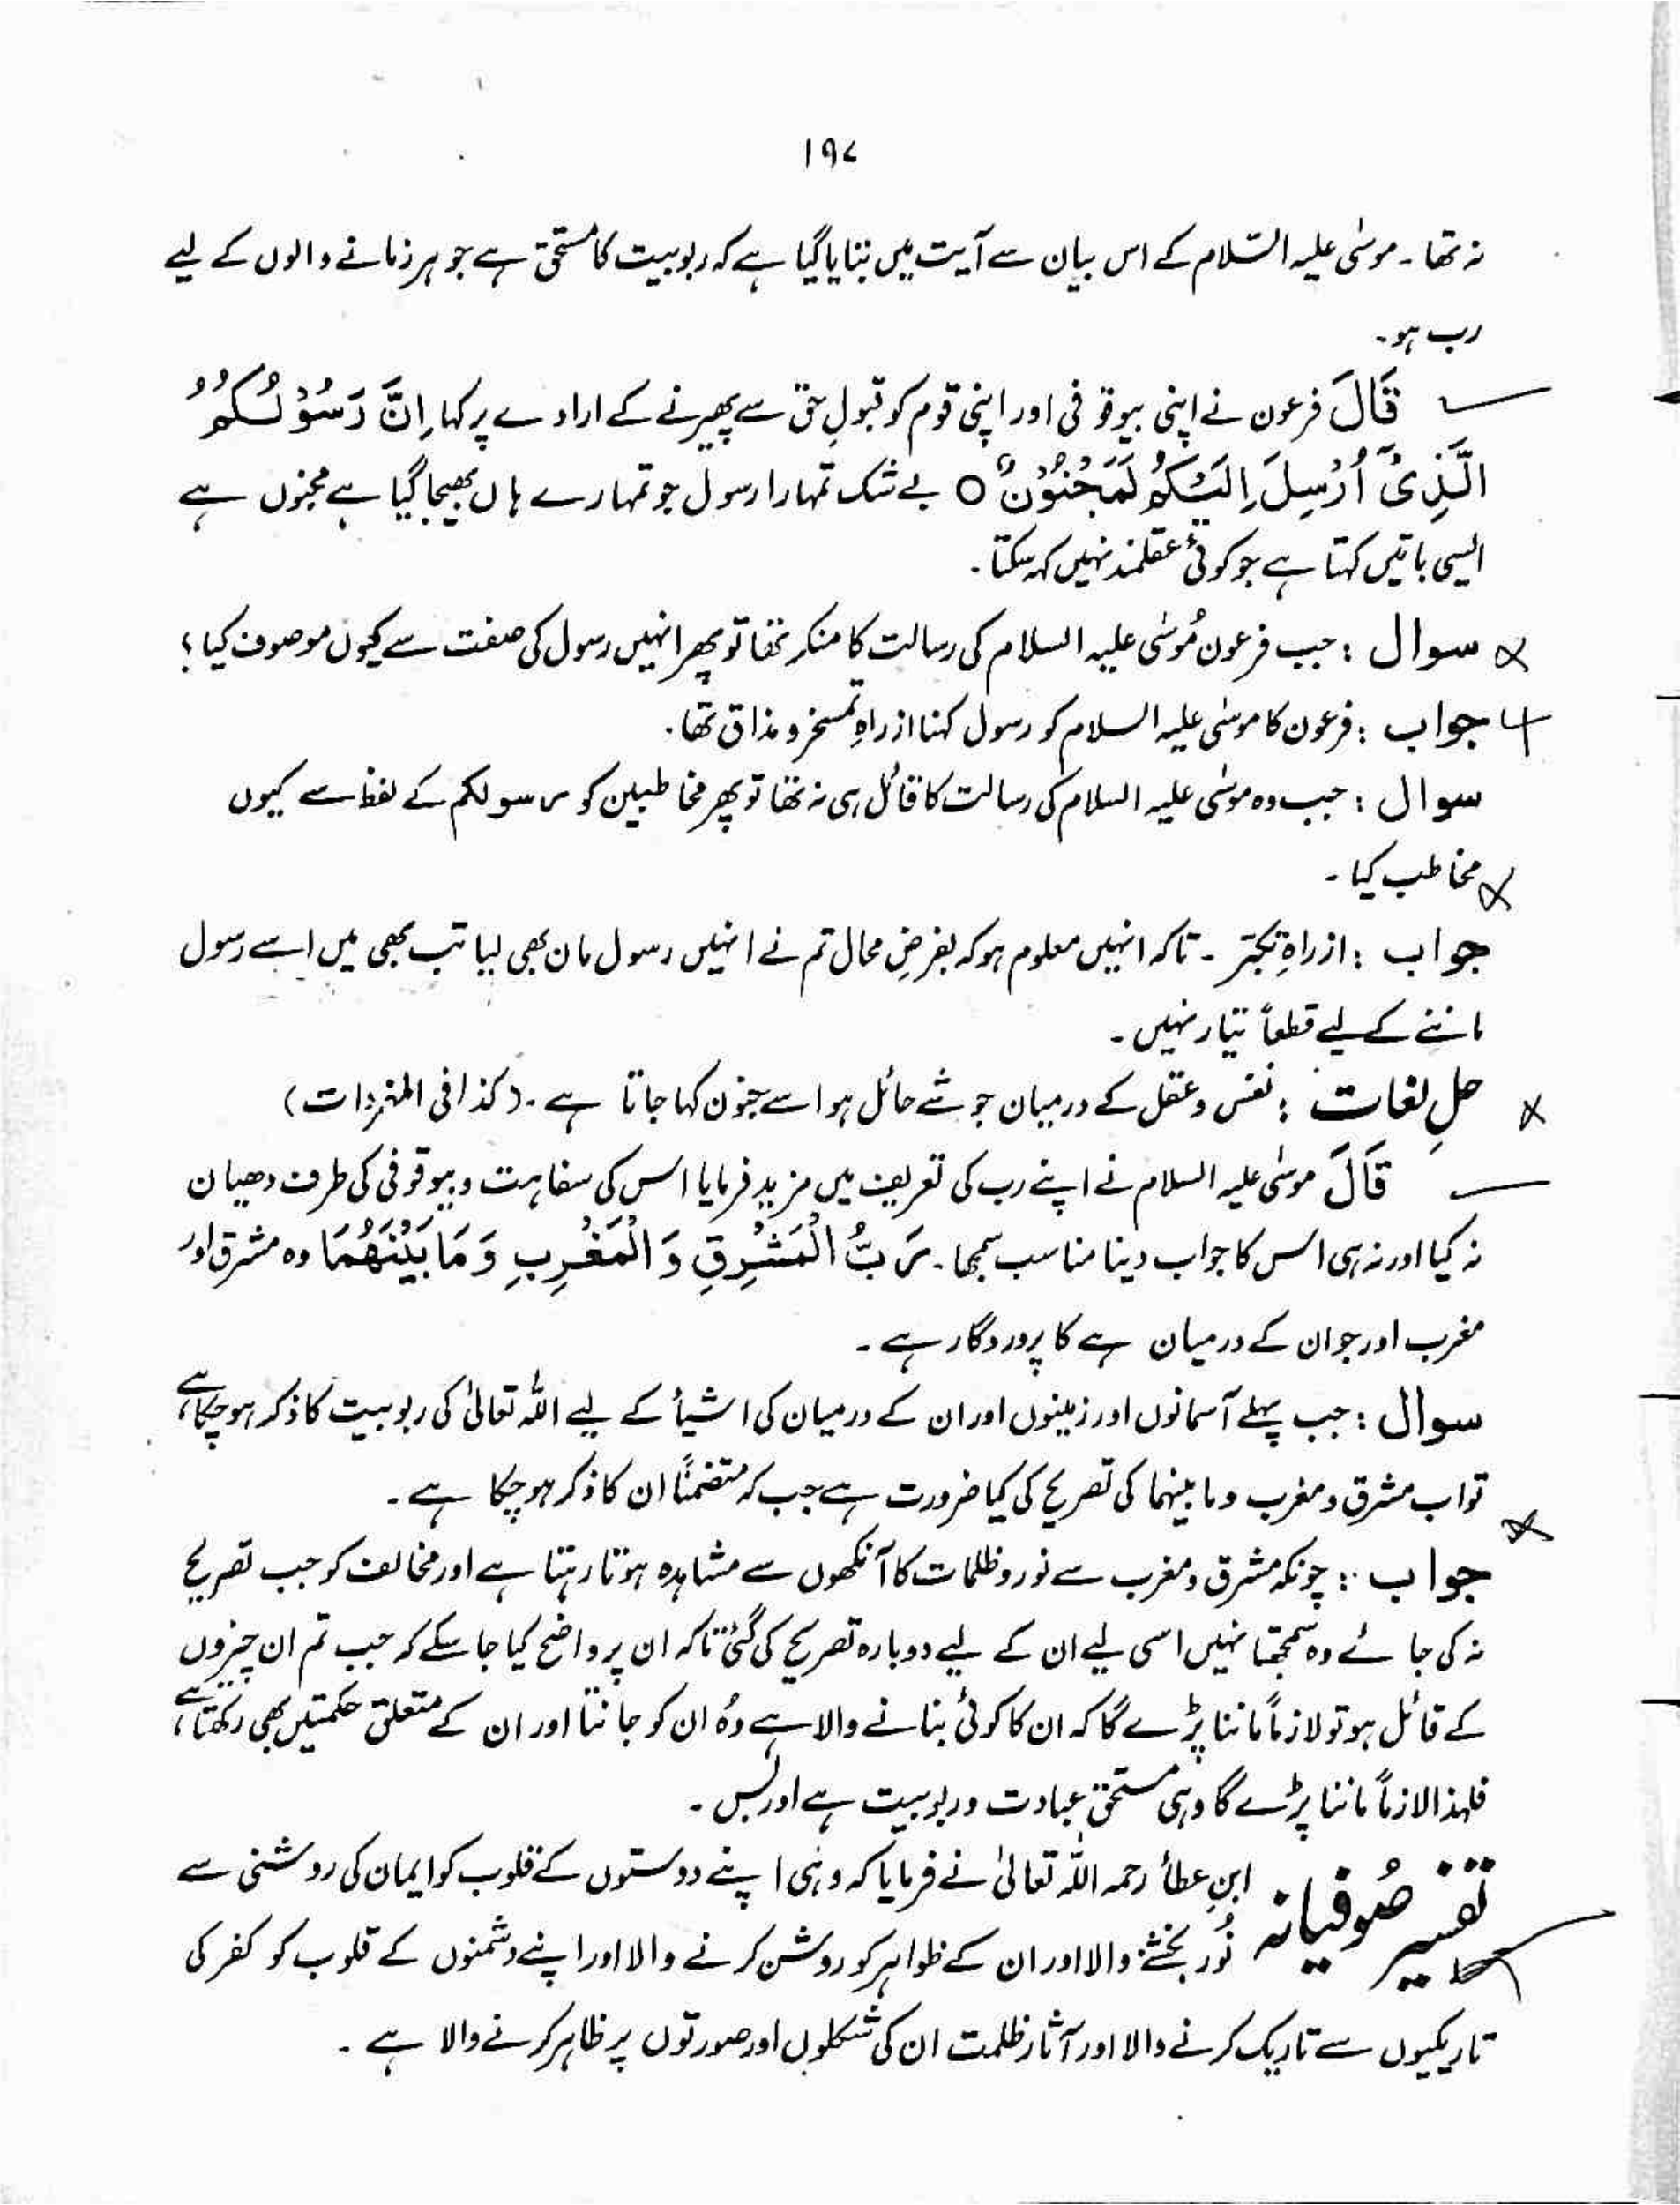 ۱۹۷
نہ تھا ۔ موسٰی علیہ السّلام کے اس بیان سے آیت میں بتایا گیا ہے کہ ربوبیت کا مستحق ہے جو ہر زمانے والوں کے لیے
رب ہو ۔
قَالَ فرعون نے اپنی بیوقوفی اور اپنی قوم کو قبولِ حق سے پھیرنے کے ارادے پر کہا اِنَّ رَسُوْلَكُمُ
الَّذِیْۤ اُرْسِلَ اِلَیْكُمْ لَمَجْنُوْنٌ ○ بے شک تمہارا رسول جو تمہارے ہاں بھیجا گیا ہے مجنوں ہے
ایسی باتیں کہتا ہے جو کوئی عقلمند نہیں کہہ سکتا ۔
سوال : جب فرعون مُوسٰی علیہ السلام کی رسالت کا منکر تھا تو پھر انہیں رسول کی صفت سے کیوں موصوف کیا ؟
جواب : فرعون کا موسٰی علیہ السلام کو رسول کہنا از راہِ تمسخر و مذاق تھا ۔
سوال : جب وہ موسٰی علیہ السلام کی رسالت کا قائل ہی نہ تھا تو پھر مخاطبین کو رسولکم کے لفظ سے کیوں
مخاطب کیا ۔
جواب : از راہِ تکبّر ۔ تاکہ انہیں معلوم ہو کہ بفرضِ محال تم نے انہیں رسول مان بھی لیا تب بھی میں اسے رسول
ماننے کے لیے قطعاً تیار نہیں ۔
حلِ لغات : نفس و عقل کے درمیان جو شے حائل ہو اسے جنون کہا جاتا ہے ۔ (کذا فی المفردات)
قَالَ موسٰی علیہ السلام نے اپنے رب کی تعریف میں مزید فرمایا اس کی سفاہت و بیوقوفی کی طرف دھیان
نہ کیا اور نہ ہی اس کا جواب دینا مناسب سمجھا ۔ رَبُّ الْمَشْرِقِ وَ الْمَغْرِبِ وَ مَا بَیْنَهُمَا وہ مشرق اور
مغرب اور جو ان کے درمیان ہے کا پروردگار ہے ۔
سوال : جب پہلے آسمانوں اور زمینوں اور ان کے درمیان کی اشیأ کے لیے اللہ تعالیٰ کی ربوبیت کا ذکر ہو چکا ہے،
تو اب مشرق و مغرب و ما بینہما کی تصریح کی کیا ضرورت ہے جب کہ متضمنًا ان کا ذکر ہو چکا ہے ۔
جواب : چونکہ مشرق و مغرب سے نور و ظلمات کا آنکھوں سے مشاہدہ ہوتا رہتا ہے اور مخالف کو جب تصریح
نہ کی جائے وہ سمجھتا نہیں اسی لیے ان کے لیے دوبارہ تصریح کی گئی تاکہ ان پر واضح کیا جا سکے کہ جب تم ان چیزوں
کے قائل ہو تو لازماً ماننا پڑے گا کہ ان کا کوئی بنانے والا ہے وُہ ان کو جانتا اور ان کے متعلق حکمتیں بھی رکھتا ہے،
فلہذا لازماً ماننا پڑے گا وہی مستحق عبادت و ربوبیت ہے اور بس ۔
تفسیر صُوفیانہ ابنِ عطأ رحمہ اللہ تعالیٰ نے فرمایا کہ وہی اپنے دوستوں کے قلوب کو ایمان کی روشنی سے
نُور بخشنے والا اور ان کے ظواہر کو روشن کرنے والا اور اپنے دشمنوں کے قلوب کو کفر کی
تاریکیوں سے تاریک کرنے والا اور آثارِ ظلمت ان کی شکلوں اور صورتوں پر ظاہر کرنے والا ہے ۔